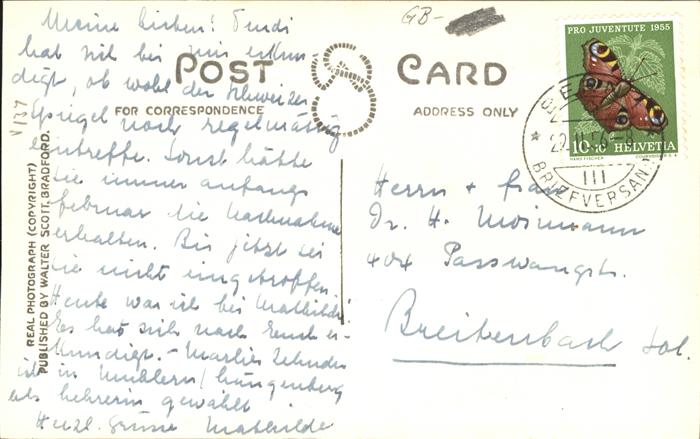 Meine Lieben! Trudi
hat sich bei mir erkun-
digt, ob wohl der Schweizer
Spiegel noch regelmässig
eintreffe. Sonst hätte
sie immer anfangs
Februar die Nachnahme
erhalten. Bis jetzt sei
sie nicht eingetroffen.
Heute war ich bei Mathilde
Es hat sich nach Euch er-
kundigt. - Marlies Zehnder
ist in
als Lehrerin gewählt
Herzl. Grüsse Mathilde
GB-
POST CARD
FOR CORRESPONDENCE
ADDRESS ONLY
V/137
REAL PHOTOGRAPH (COPYRIGHT)
PUBLISHED BY WALTER SCOTT, BRADFORD.
PRO JUVENTUTE 1955
10+10 HELVETIA
HANS FISCHER
COURVOISIER S.A.
BERN
III
BRIEFVERSAND
Herrn + Frau
Dr. H. Moimann
404 Passwangstr.
Breitenbach Sol.